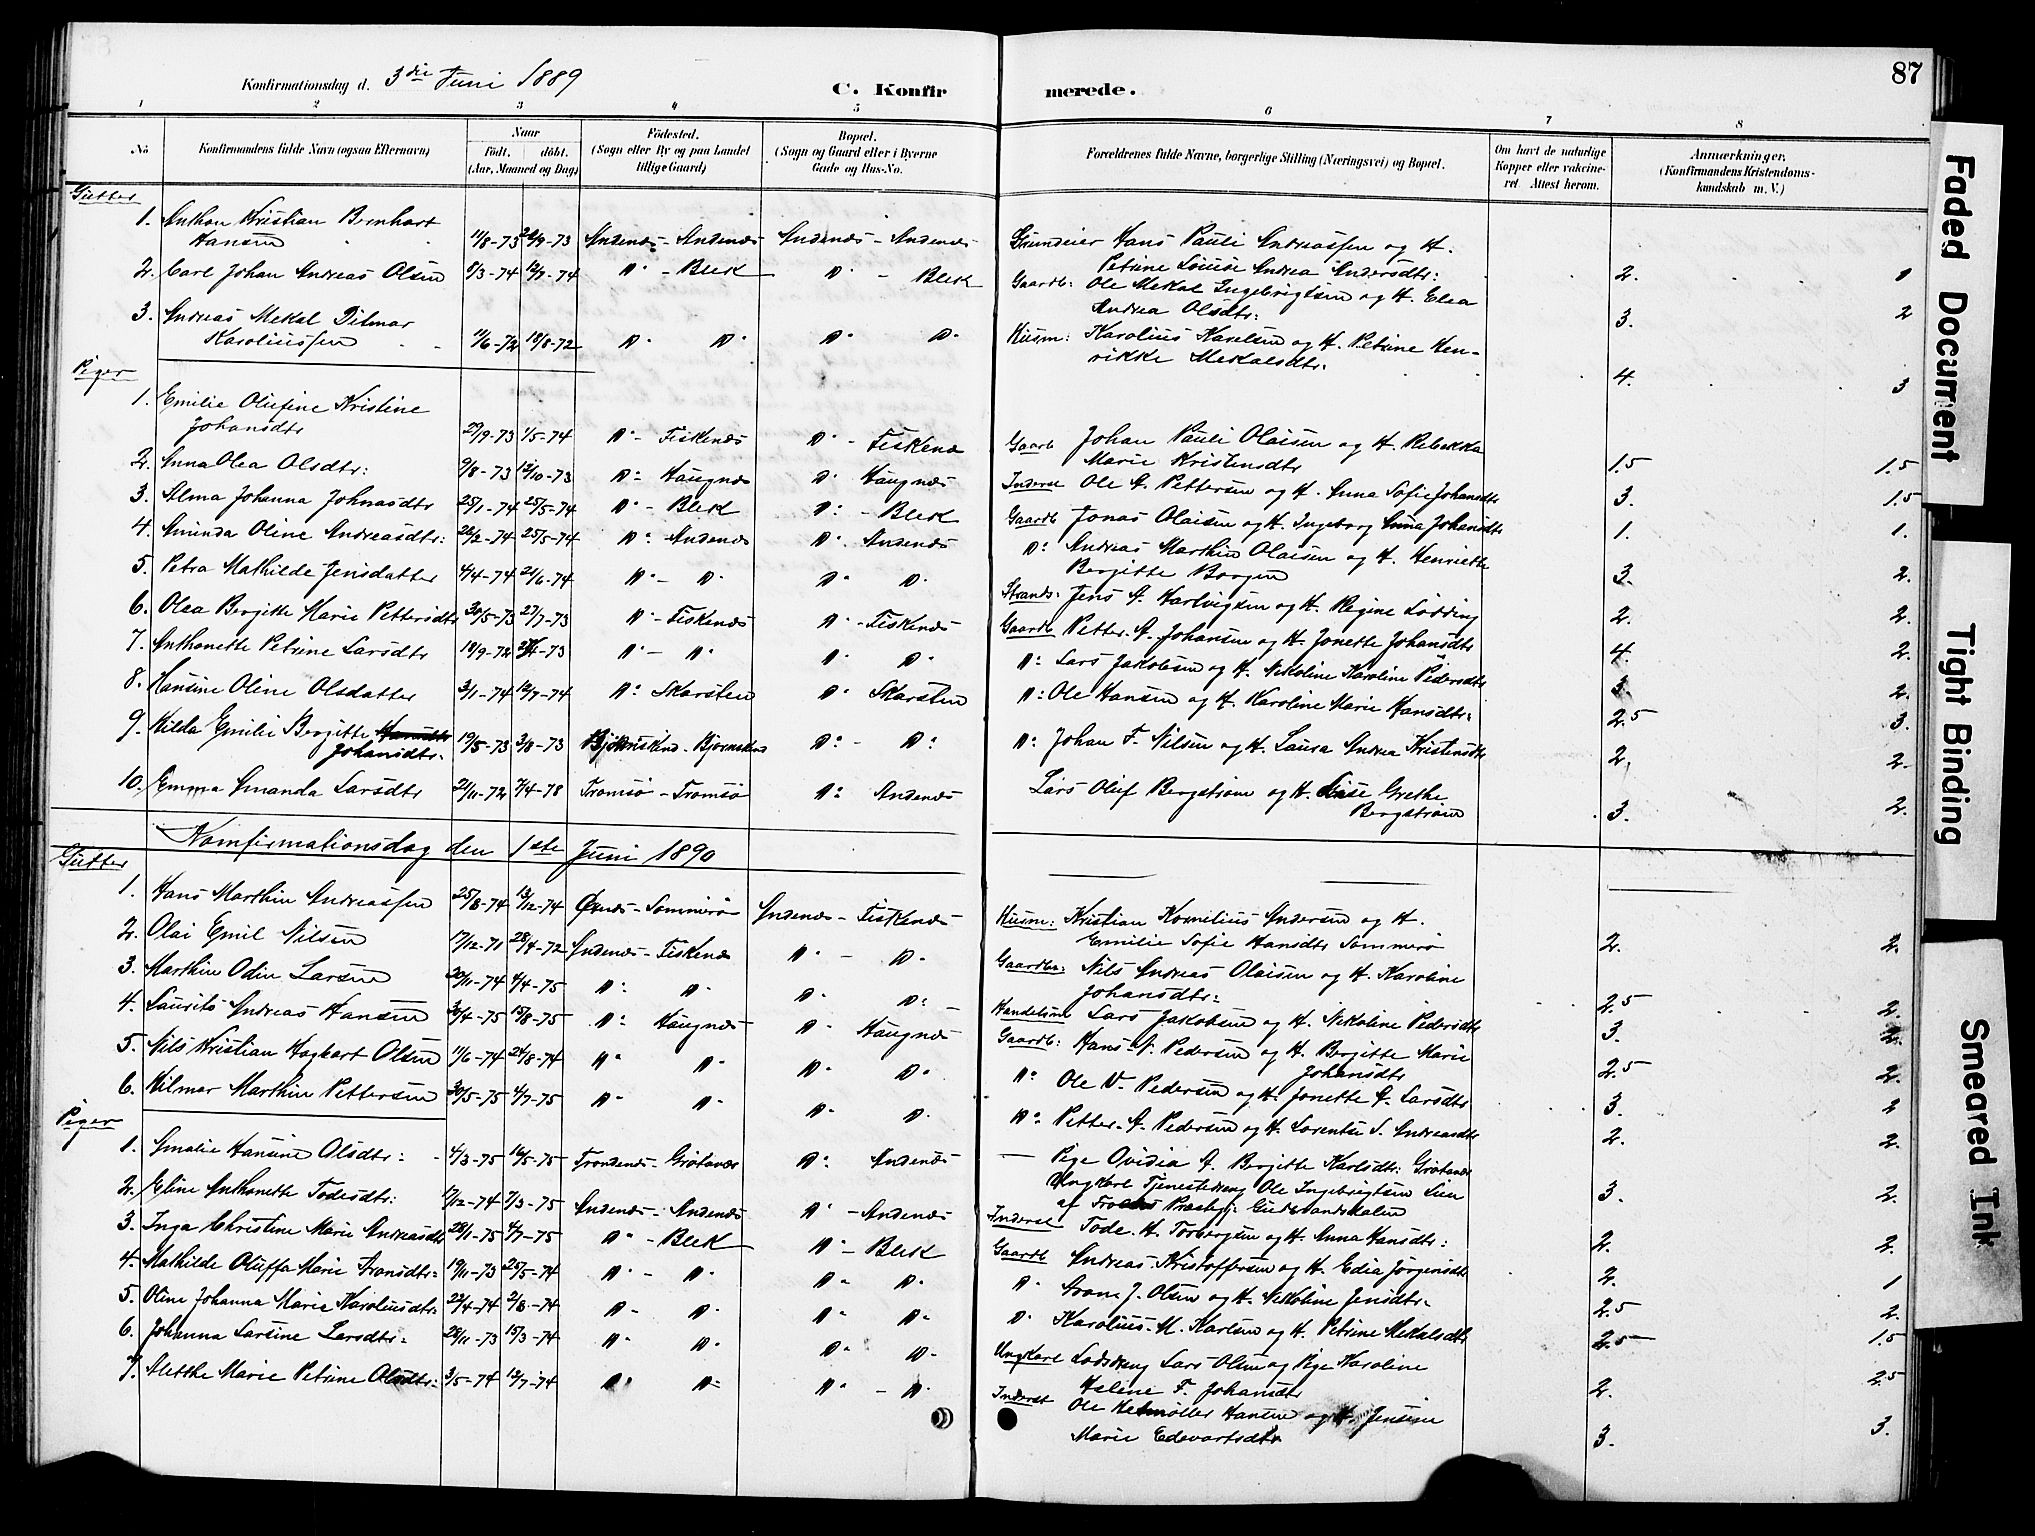 87
Konfirmationsdag d. 3die Juni 1889
C. Konfirmerede.
1 2 3 4 5 6 7 8
No
Konfirmandens fulde Navn (ogsaa Efternavn)
Naar
Födt. döbt.
(Aar, Maaned og Dag)
Födested.
(Sogn eller By og paa Landet tillige Gaard)
Bopæl.
(Sogn og Gaard eller i Byerne Gade og Hus-No.
Forældrenes fulde Navne, borgerlige Stilling (Næringsvei) og Bopæl.
Om havt de naturlige Kopper eller vakcineret. Attest herom.
Anmærkninger.
(Konfirmandens Kristendomskundskab m. V.)
Gutter
1. Anthon Kristian Bernhart Hansen 11/8-73 Andenæs - Andenæs Andenæs - Andenæs Grundeier Hans Pauli Andreassen og H. Petrine Lovise Andrea Andersdtr: 2. 1
2. Carl Johan Andreas Olsen 9/3-74 12/7-74 D° - Bleik D° - Bleik Gaardb: Ole Mekal Ingebrigtsen og H. Elea Andrea Olsdtr: 3. 2
3. Andreas Mekal Ditmar Karoliussen 11/6-72 18/8-72 D° D° D° D° Husm: Karolius Karelsen og H. Petrine Henrikke Mekalsdtr. 4. 3
Piger
1. Emilie Olufine Kristine Johansdtr 29/9-73 1/5-74 D° - Fiskenæs D° - Fiskenæ Gaardb Johan Pauli Olaisen og H. Rebekka Marie Kristensdtr 1.5 1.5
2. Anna Olea Olsdtr: 9/8-73 12/10-73 D: Haugnæs D° Haugnæs Inderst Ole A. Pettersen og H. Anna Sofie Johansdtr 3. 1.5
3. Alma Johanna Johnasdtr 25/1-74 25/5-74 D° - Bleik D: - Bleik Gaardb Jonas Olaisen og H. Ingeborg Anna Johansdtr 1. 1.
4. Amunda Oline Andreasdtr: 26/2-74 25/5-74 D: Andenæs D° Andenæs D: Andreas Marthin Olaisen og H. Henriette Bergitte Borgen 3. 2.
5. Petra Mathilde Jensdatter 4/4-74 21/6-74 D° - D° D° D° Strands: Jens A. Hartvigsen og H. Regine Lödding 2. 2.
6. Olea Bergitte Marie Pettersdtr 30/5-73 27/7-73 D° - Fiskenæs D° - Fiskenæs Gaardb Petter A. Johansen og H. Jonette Johansdtr 4. 2.
7. Anthonette Petrine Larsdtr 18/9-72 D° - D° D° D° D: Lars Jakobsen og H. Nikoline Karoline Pedersdtr 3 2.
8. Hansine Oline Olsdatter 3/1-74 12/7-74 D: Skarsten D° Skarsten D: Ole Hansen og H. Karoline Marie Hansdtr: 2.5 3.
9. Hilda Emilie Bergitte Johansdtr. 19/5-73 3/8-73 D: - D: D: Johan F. Nilsen og H. Laura Andrea Kristensdtr 2. 2.
10. Emma Amanda Larsdtr 21/11-72 7/4-78 Tromsö - Tromsö D: Andenæs Lars Oluf Bergström og H. Lise Grethe Bergström 3. 2.
Konfirmationsdag den 1ste Juni 1890
Gutter
1. Hans Marthin Andreassen 25/8-74 13/12-74 Øxnæs - Sommerö Andenæs - Fiskenæs Husm: Kristian Kornelius Andersen og H. Emilie Sofie Hansdtr Sommerö 2. 2.
2. Olai Emil Nilsen 17/12-71 28/4-72 Andenæs - Fiskenæs D° - D° Gaardbr: Nils Andreas Olaisen og H. Karoline Johansdtr: 2.5 2.
3. Marthin Odin Larsen 20/11-74 4/4-75 D: D° D° D: Handelsm Lars Jakobsen og H. Nikoline Pedersdtr 3. 2.
4. Laurits Andreas Hansen 30/4-75 15/8-75 D: Haugnæs D° Haugnæs Gaardb: Hans N. Pedersen og H. Bergitte Marie Johansdtr 2.5 2.
5. Nils Kristian Hagbart Olsen 11/6-74 24/8-74 D° D° D° D° D: Ole N. Pedersen og H. Jonette A. Larsdtr 3. 2
6. Hilmar Marthin Pettersen 30/5-75 4/7-75 D° D° D° D° D: Petter A. Pedersen og H. Lorentse S. Andreasdtr 2. 2.
Piger
1. Amalie Hansine Olsdtr: 4/3-75 16/5-75 Trondenæs - Grötavær D: Andenæs — Pige Ovidia A. Bergitte Karlsdtr: Grötavær Ungkarl Tjenestedreng Ole Ingebrigtsen Lien af Præstgj: Gudbrandsdalen 3. 2.
2. Eline Anthonette Todesdtr: 17/12-74 7/3-75 Andenæs - Andenæs D° - Andenæs Inderst Tode H. Torbergsen og H. Anna Hansdtr: 2. 2.
3. Inga Christine Marie Andreasdtr 28/1-75 4/7-75 D° - Bleik D° - Bleik Gaardb Andreas Kristoffersen og H. Edia Jørgensdtr 2. 1
4. Mathilde Oluffa Marie Aronsdtr: 19/11-73 25/5-74 D° - D° D° D° D° Aron J. Olsen og H. Nikoline Jensdtr. 2.5 2.
5. Oline Johanna Marie Karoliusdtr: 22/4-74 2/8-74 D° D° D° D° D° Karolius M. Karlsen og H. Petrine Mekalsdtr 2.5 1.5
6. Johanna Larsine Larsdtr. 28/11-73 15/3-74 D° D° D° D° Ungkarl Lodsdreng Lars Olsen og Pige Karoline Heline F. Johansdtr 2. 2.5
7. Aletthe Marie Petrine Olsdtr: 3/5-74 12/7-74 D° D° D° - D° Inderst Ole Hetmöller Hansen og H. Jensine Marie Edevartsdtr 3. 3.
Faded Document
Tight Binding
Smeared Ink